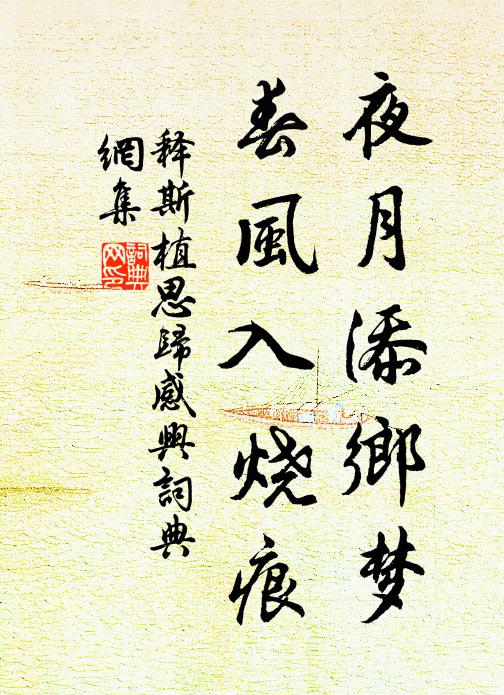 夜月添鄉梦
春風入烧痕
释斯植思歸感興詞典
網集
詞典
网印